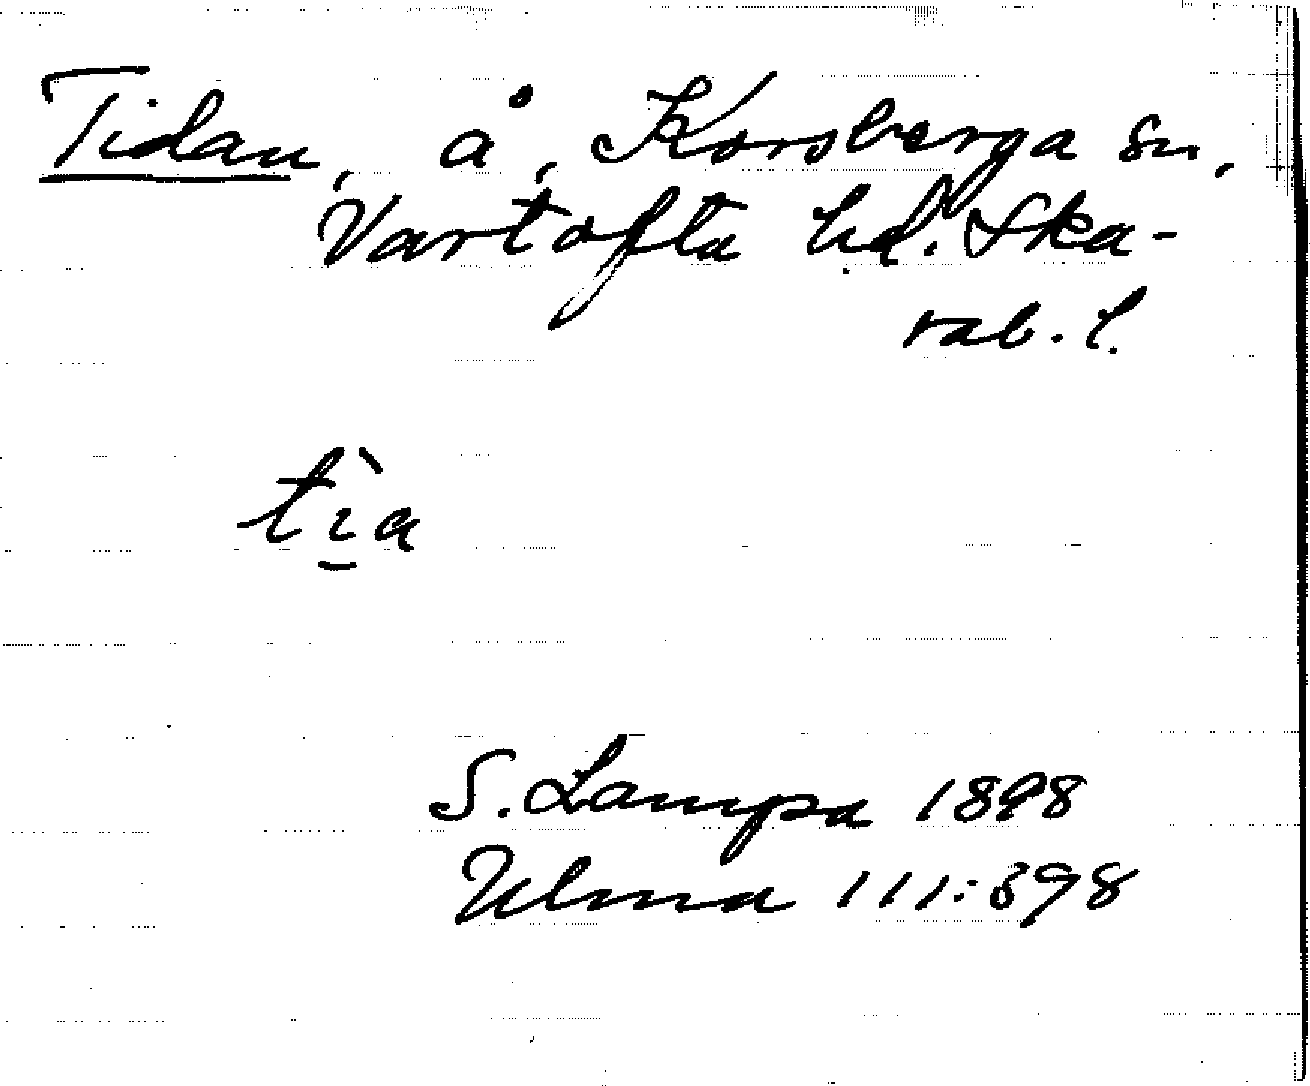 Tidan, å, Korsberga sn,
Vartofta hd. Ska-
rab. l.
tìa
S. Lampa 1898
Ulma 111:398